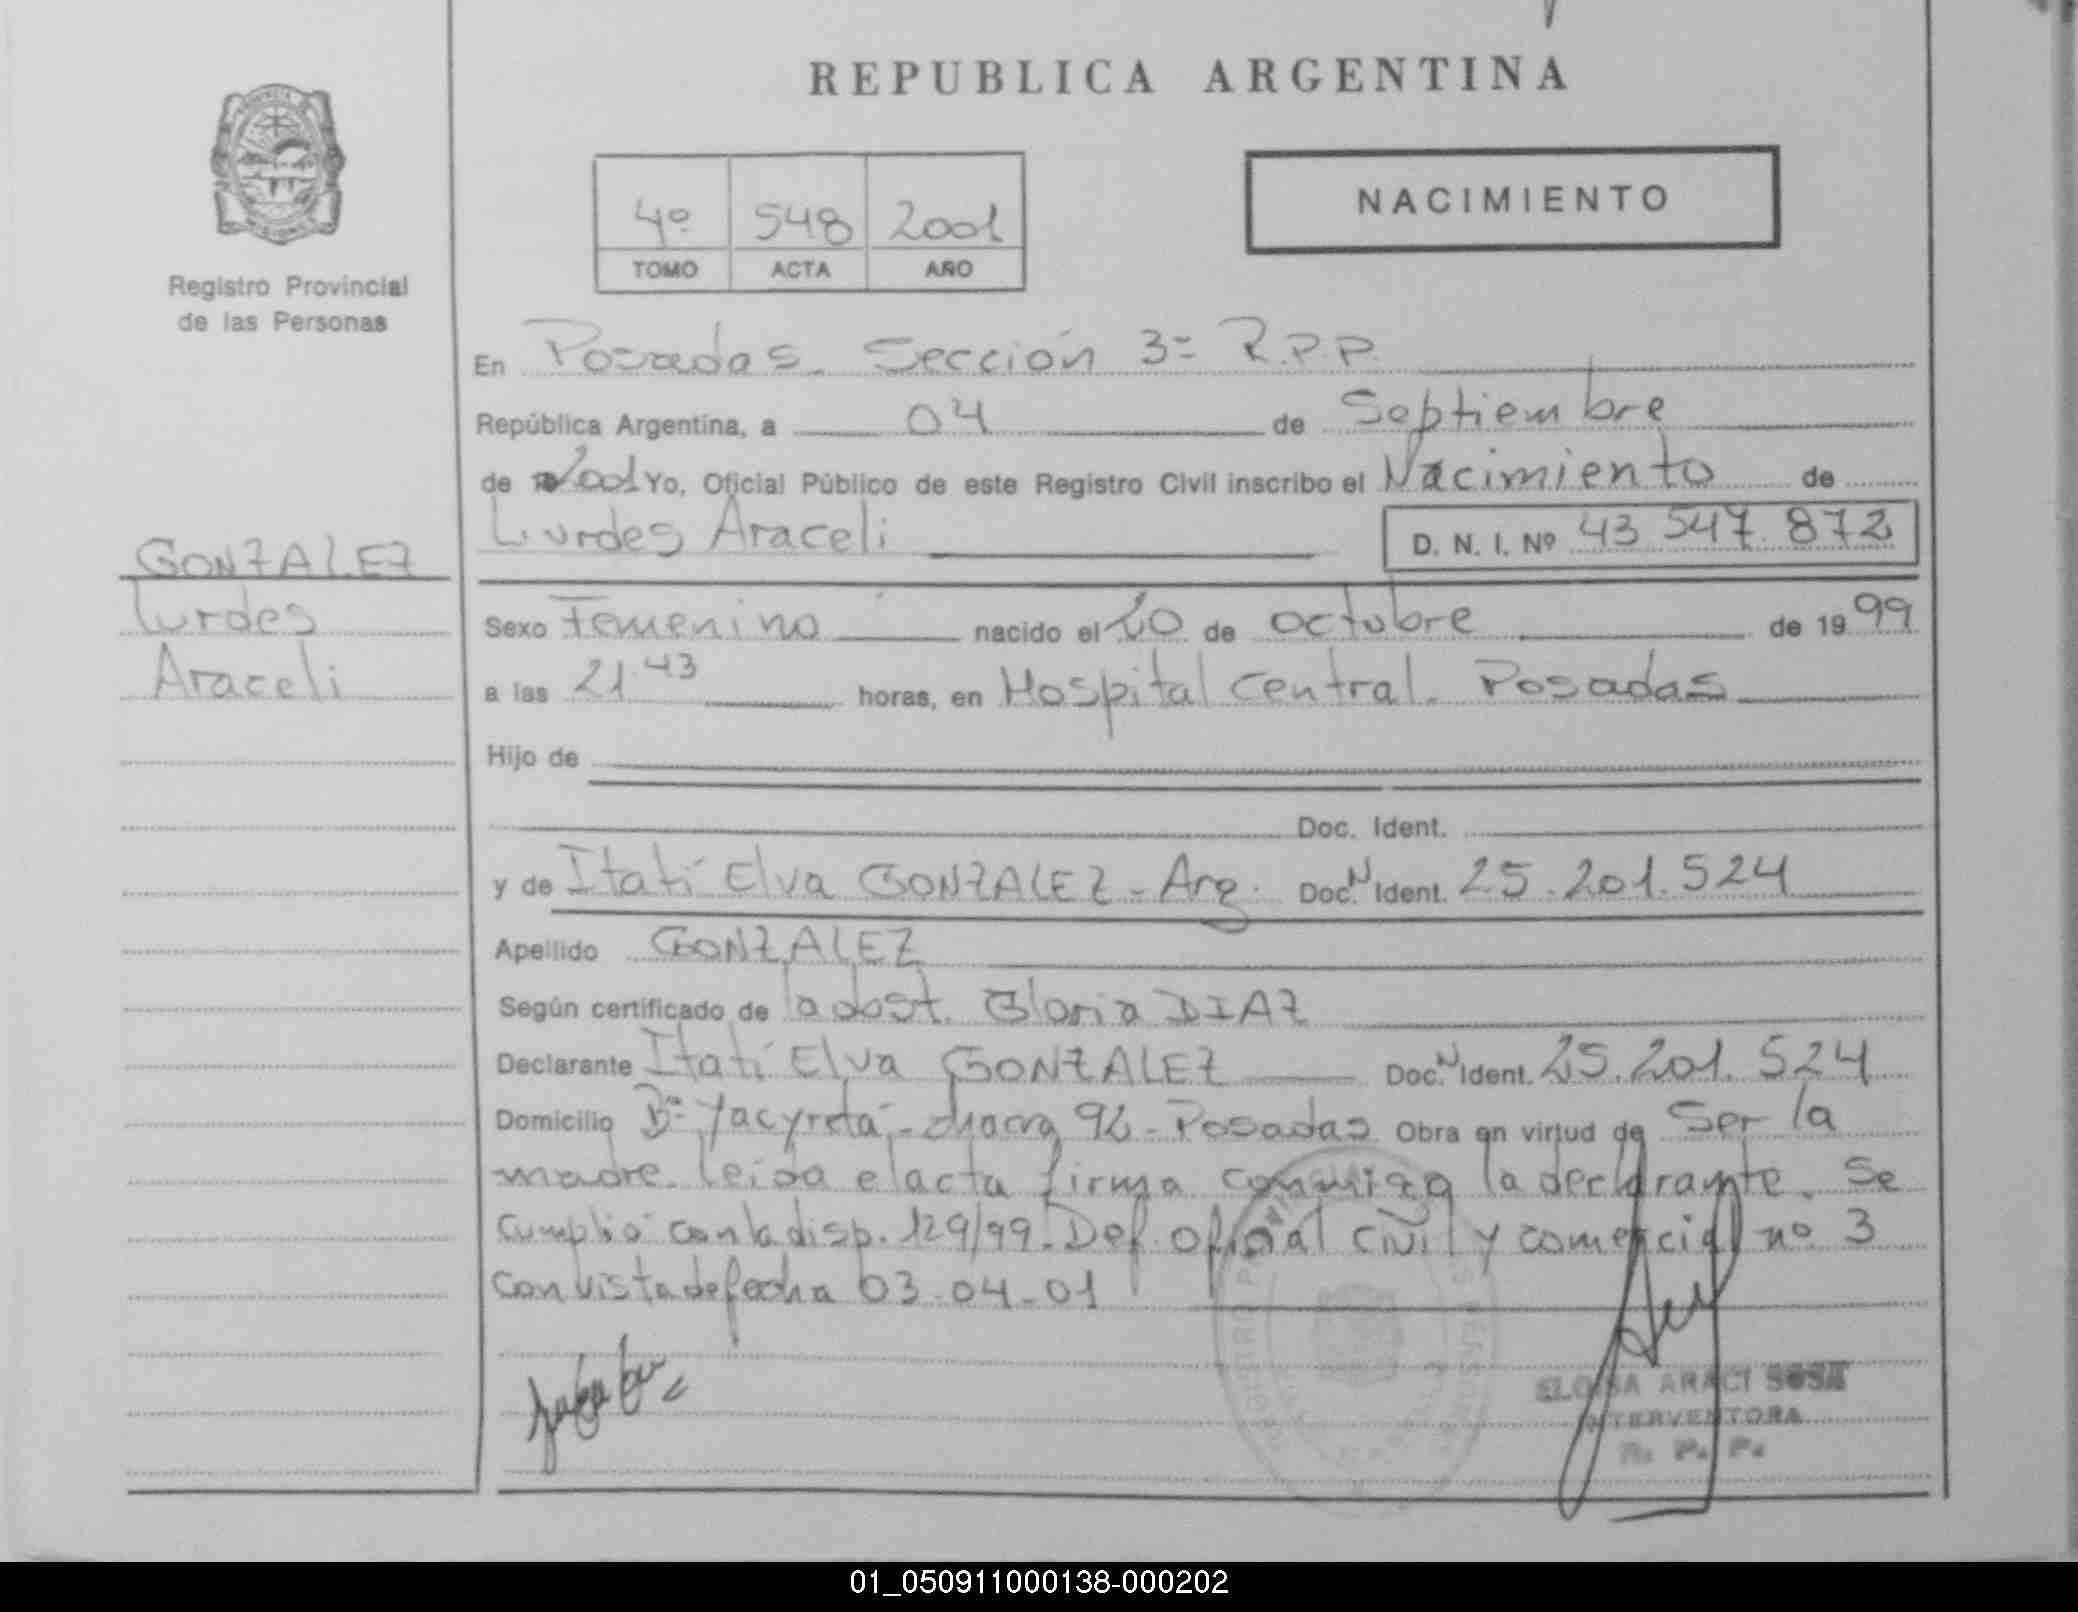 REPUBLICA ARGENTINA
Registro Provincial
de las Personas
4º 548 2001
TOMO ACTA AÑO
NACIMIENTO
En Posadas. Sección 3º R.P.P.
República Argentina, a 04 de Septiembre
de 2001 Yo, Oficial Público de este Registro Civil inscribo el Nacimiento de
Lurdes Araceli D. N. I. Nº 43 547 872
GONZALEZ
Lurdes
Araceli
Sexo Femenino nacido el 20 de octubre de 1999
a las 21.43 horas, en Hospital Central. Posadas
Hijo de
Doc. Ident.
y de Itatí Elva GONZALEZ - Arg. Doc. N Ident. 25.201.524
Apellido GONZALEZ
Según certificado de la obst. Gloria DIAZ
Declarante Itatí Elva GONZALEZ Doc. N Ident. 25.201.524
Domicilio Bº Yacyretá - chacra - Posadas Obra en virtud de Ser la
madre. leida el acta firma conmigo la declarante. Se
cumplió con la disp. 129/99. Def. oficial civil y comercial nº 3
con vista de fecha 03-04-01
ELOISA ARACI SOSA
INTERVENTORA
R. P. P.
01_050911000138-000202